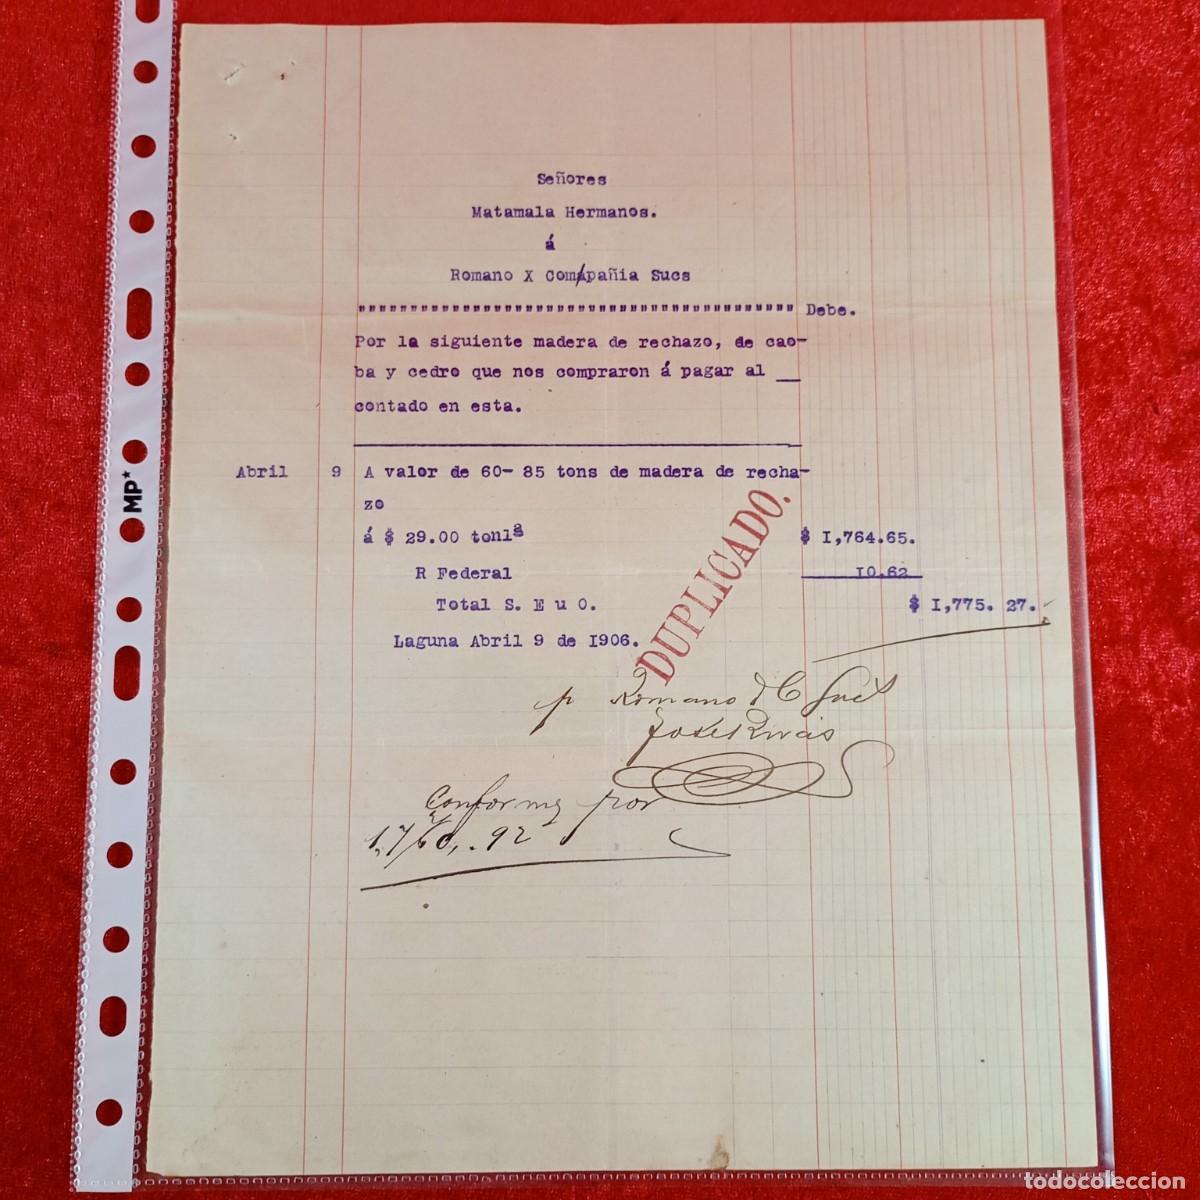 Señores
Matamala Hermanos.
á
Romano X Compañia Sucs
""""""""""""""""""""""""""""""""""""""""" Debe.
Por la siguiente madera de rechazo, de cao-
ba y cedro que nos compraron á pagar al __
contado en esta.
Abril 9 A valor de 60- 85 tons de madera de recha-
zo
á $ 29.00 tonlª $ I,764.65.
R Federal 10.62
Total S. E u O. $ I,775. 27.
Laguna Abril 9 de I906.
DUPLICADO.
p Romano & C Sucs
José Rivas
Conforme por
1,760,.92
MP*
todocoleccion